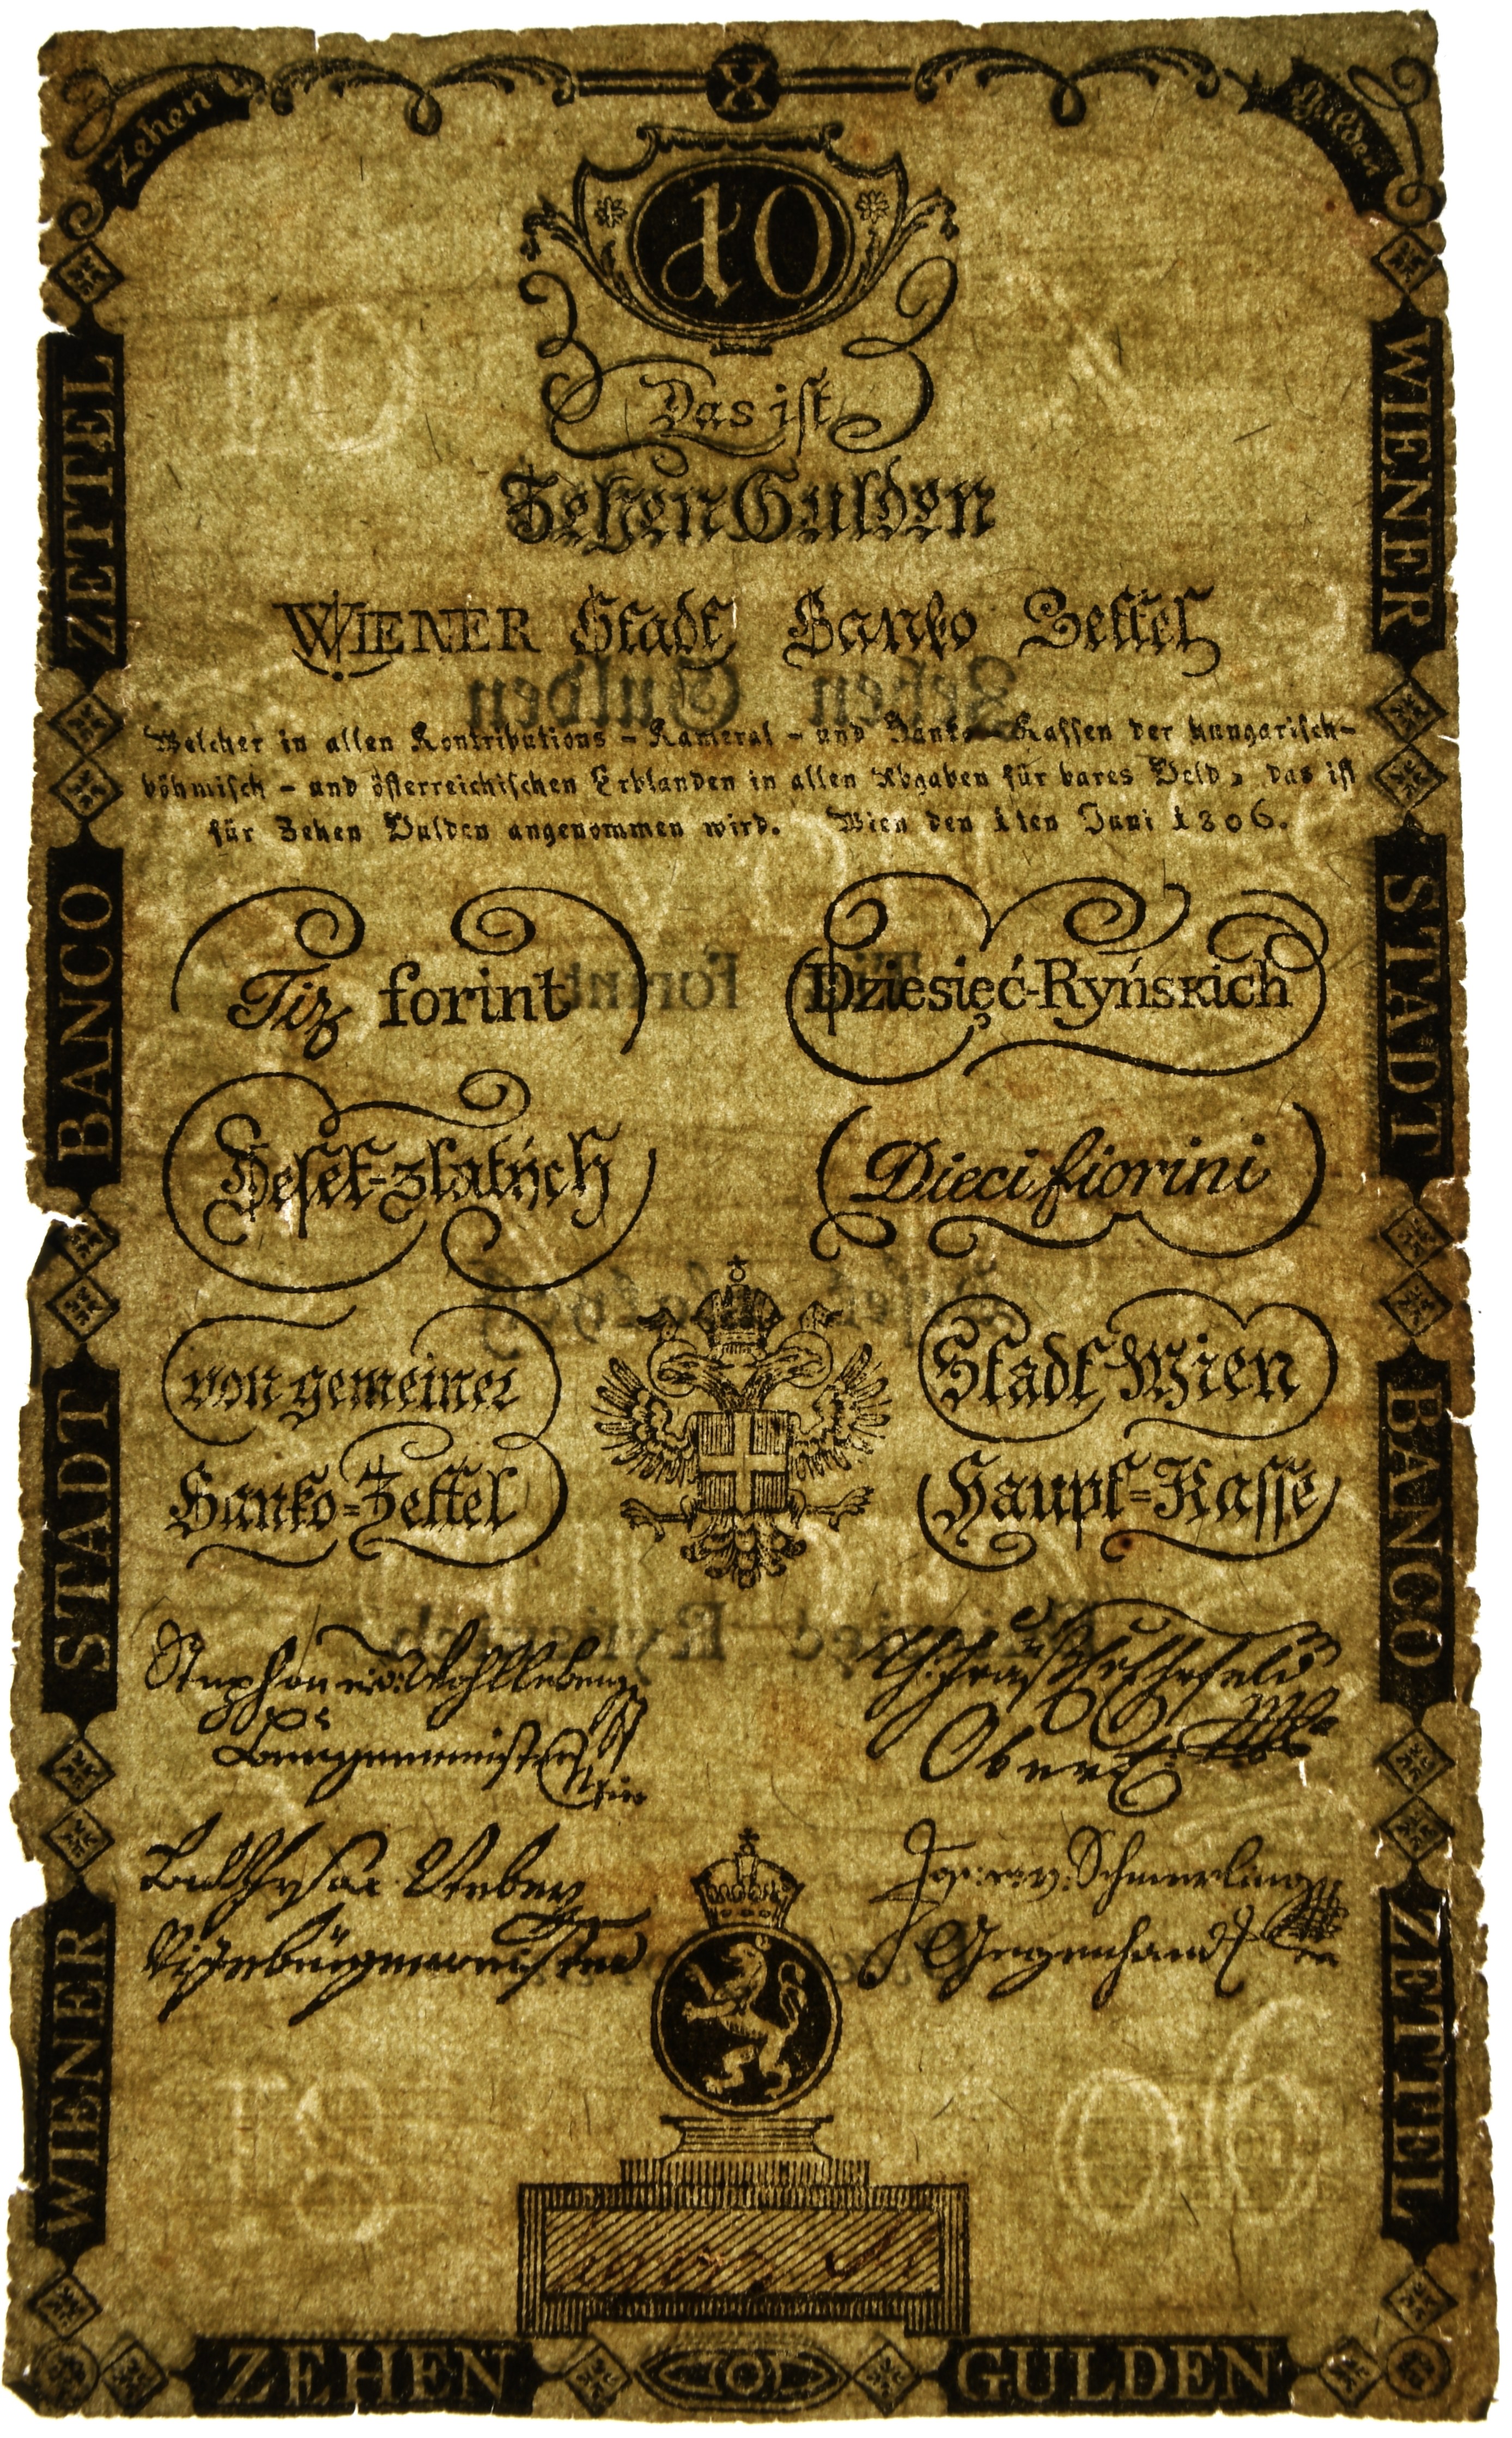 Zehen
X
Gulden
10
Das ist
Zehen Gulden
WIENER Stadt Banko Zettel
Welcher in allen Kontributions - Kameral - und Banko - Kassen der hungarisch-
böhmisch - und österreichischen Erblanden in allen Abgaben für bares Geld, das ist
für Zehen Gulden angenommen wird. Wien den 1ten Juni 1806.
Tiz forint
Dziesięć-Ryńskich
Deset-zlatých
Dieci fiorini
von gemeiner
Stadt Wien
Banko-Zettel
Haupt-Kasse
Stephan v: Wohlleben
Burgermeister
Ober
v: Schmerling
Gegenhand
WIENER
STADT
BANCO
ZETTEL
WIENER
STADT
BANCO
ZETTEL
ZEHEN
GULDEN
10
X
18
06
Zehen Gulden
forint